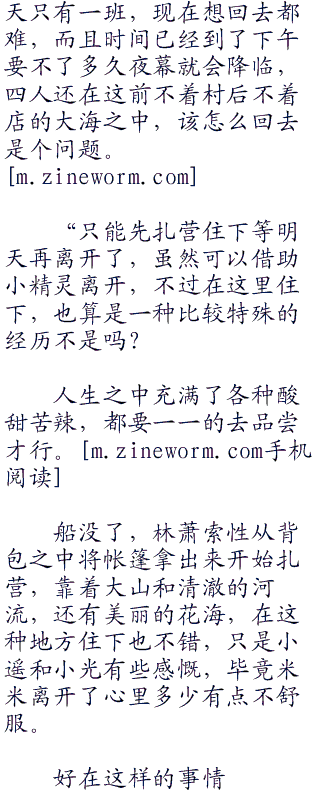 天只有一班，现在想回去都
难，而且时间已经到了下午
要不了多久夜幕就会降临，
四人还在这前不着村后不着
店的大海之中，该怎么回去
是个问题。
[m.zineworm.com]
“只能先扎营住下等明
天再离开了，虽然可以借助
小精灵离开，不过在这里住
下，也算是一种比较特殊的
经历不是吗？
人生之中充满了各种酸
甜苦辣，都要一一的去品尝
才行。[m.zineworm.com手机
阅读]
船没了，林萧索性从背
包之中将帐篷拿出来开始扎
营，靠着大山和清澈的河
流，还有美丽的花海，在这
种地方住下也不错，只是小
遥和小光有些感慨，毕竟米
米离开了心里多少有点不舒
服。
好在这样的事情